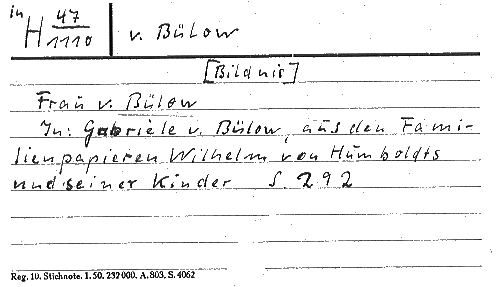 in
H 47/1110 v. Bülow
[Bildnis]
Frau v. Bülow
In: Gabriele v. Bülow, aus den Fami-
lienpapieren Wilhelm von Humboldts
und seiner Kinder S. 292
Reg. 10. Stichnote. 1. 50. 232000. A. 803. S. 4062